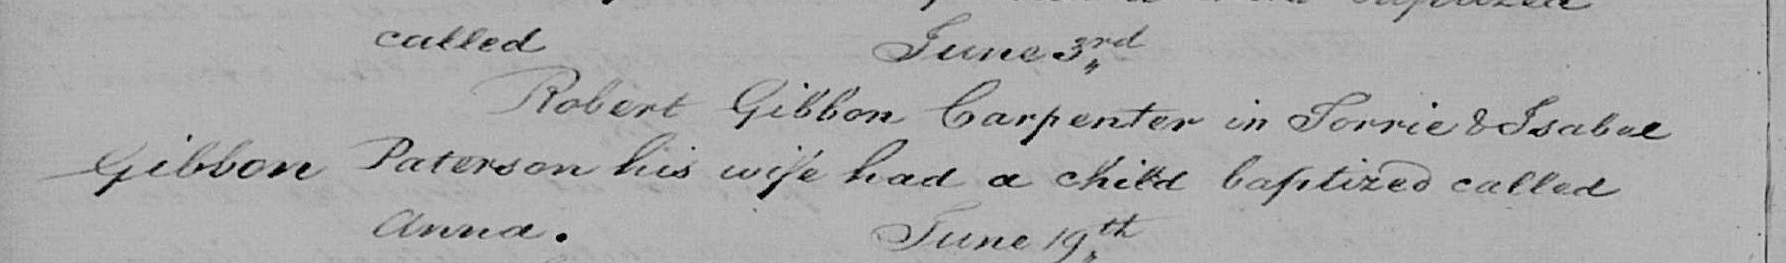 baptized
called June 3rd
Robert Gibbon Carpenter in Torrie & Isabel
Gibbon Paterson his wife had a child baptized called
Anna. June 19th